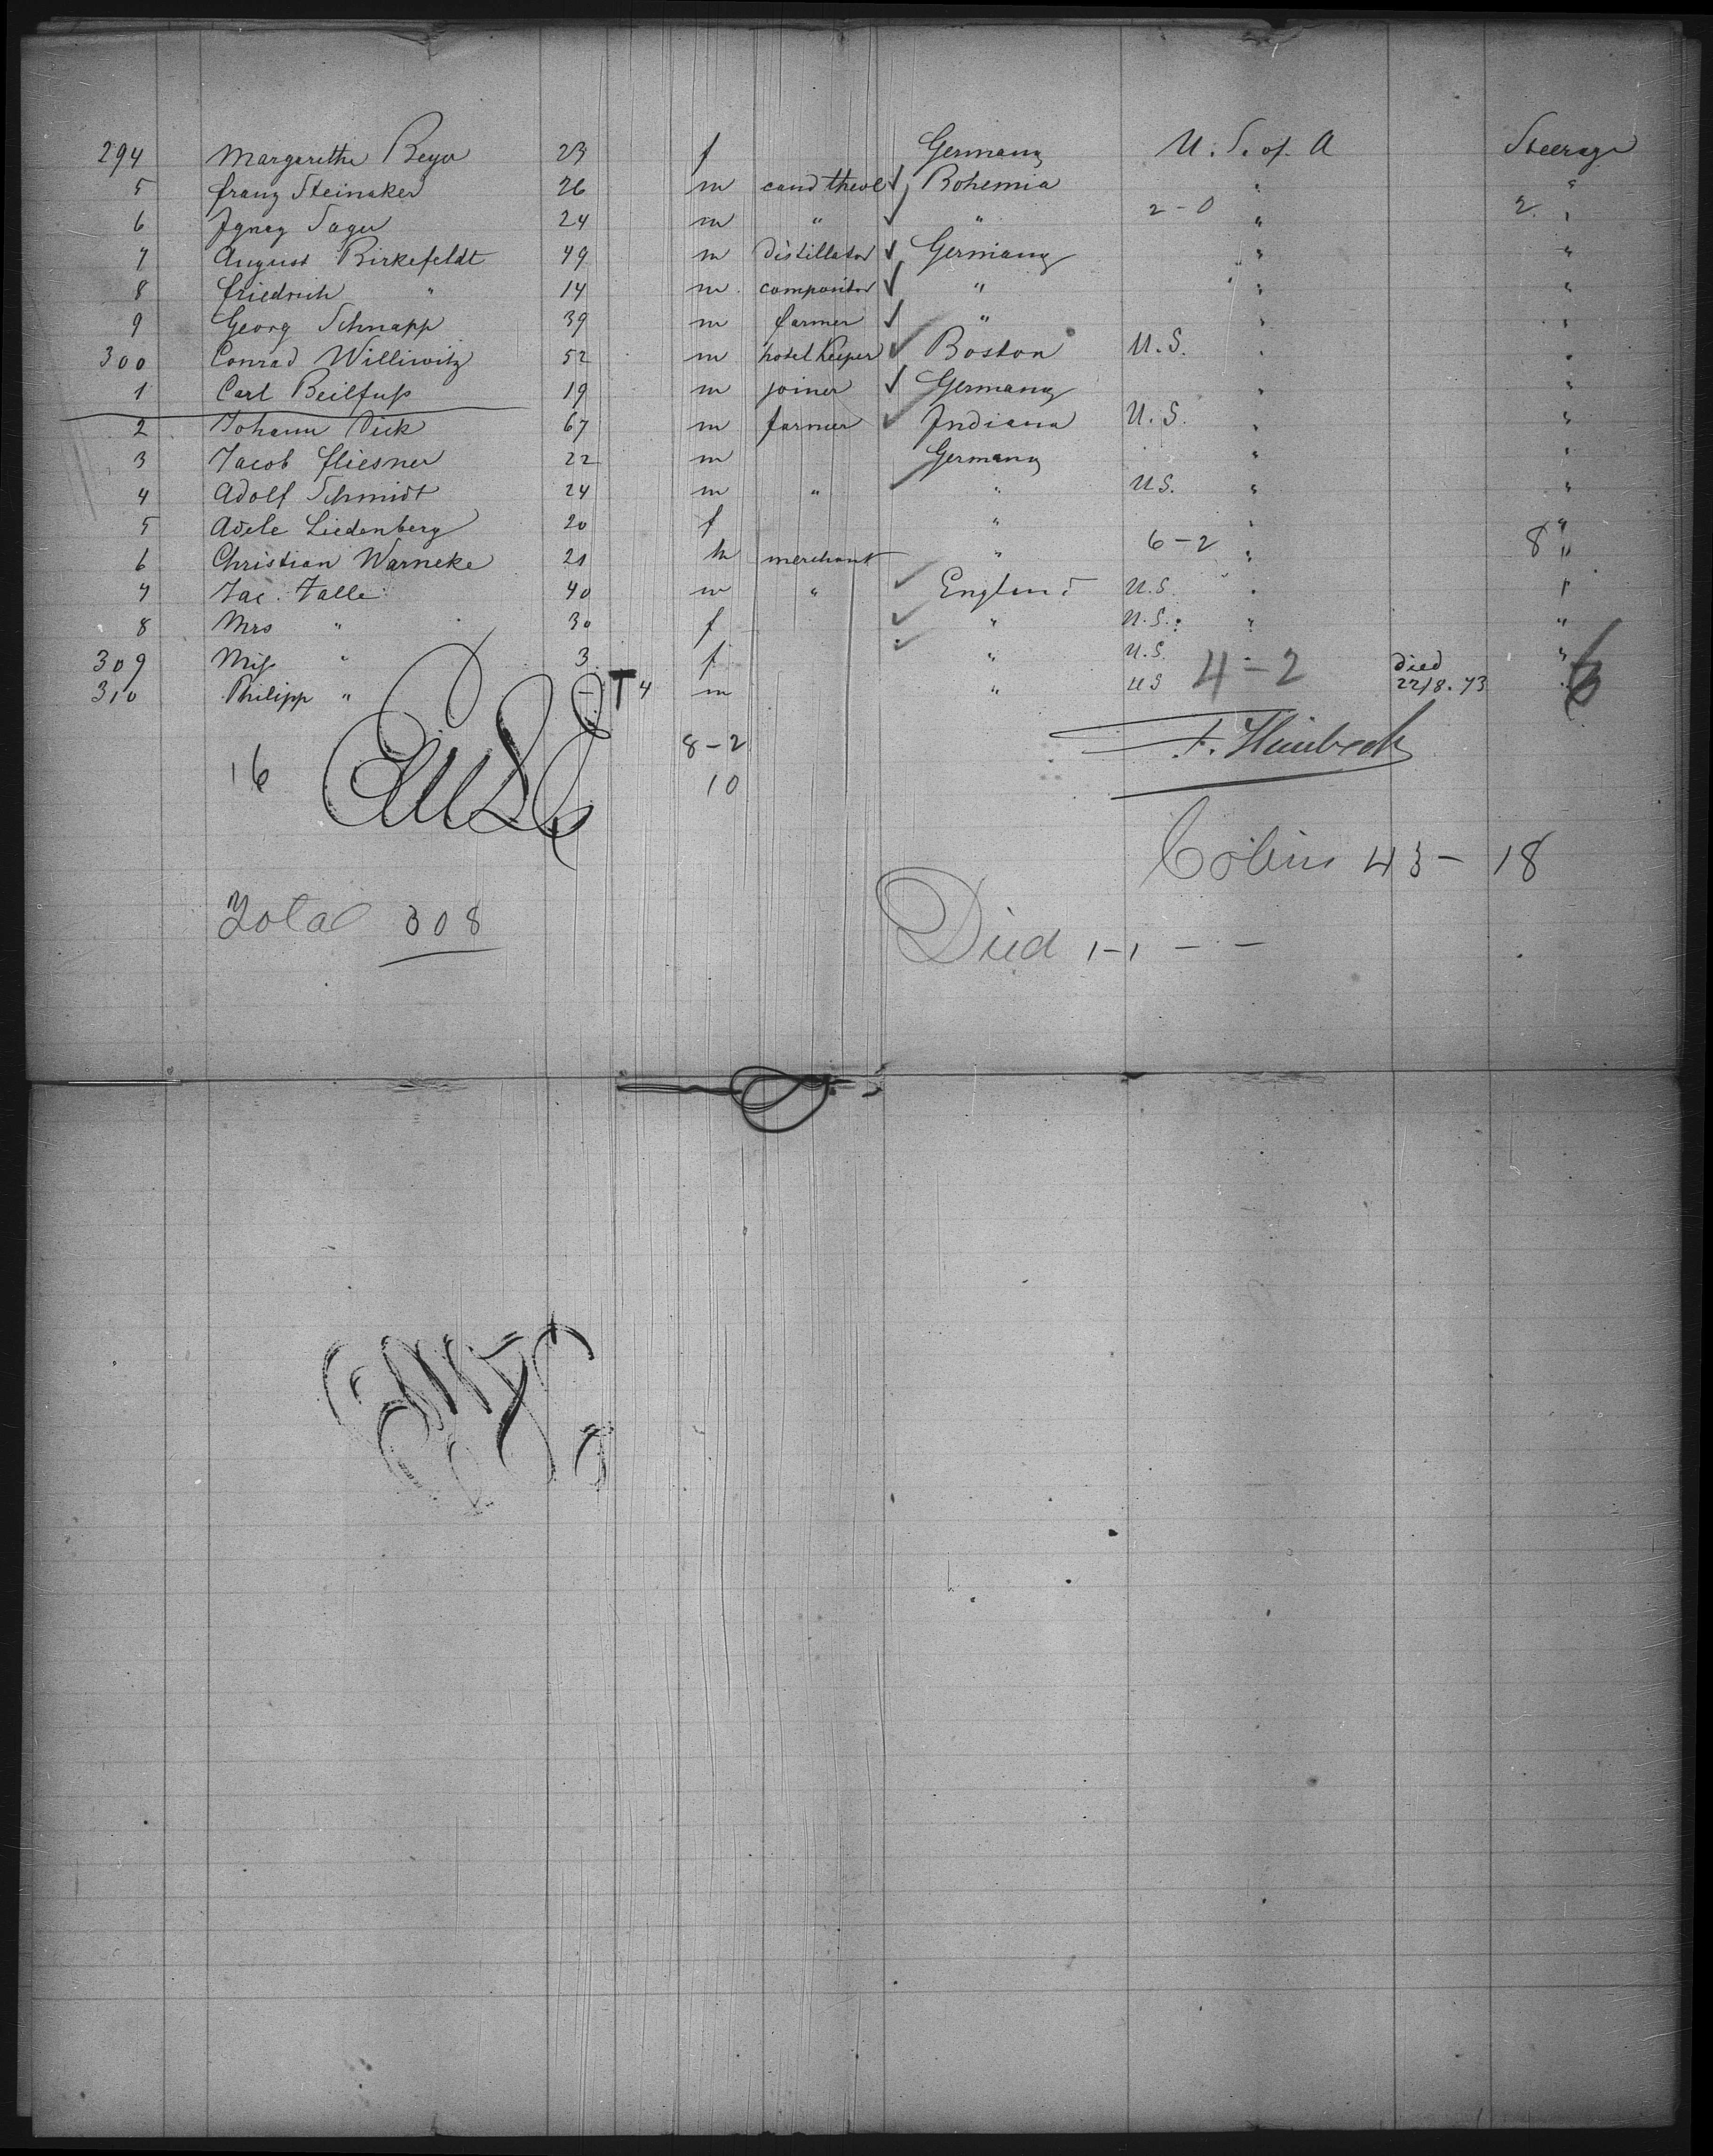 294 Margarethe Beyer 23 f Germany U. S. of A Steerage
5 Franz Steinaker 26 m cand theol ✓ Bohemia " "
6 Ignaz Sager 24 m " ✓ " 2-0 " 2 "
7 August Birkefeldt 49 m distillator ✓ Germany " "
8 Friedrich " 14 m compositor ✓ " " "
9 Georg Schnapp 39 m farmer ✓ " " "
300 Conrad Williwitz 52 m hotel keeper ✓ Boston U.S. " "
1 Carl Beilfuß 19 m joiner ✓ Germany " "
2 Johann Dick 67 m farmer ✓ Indiana U.S. " "
3 Jacob Fliesner 22 m Germany " "
4 Adolf Schmidt 24 m " ✓ " US. " "
5 Adele Liedenberg 20 f " " "
6 Christian Warneke 21 m merchant " 6-2 " 8 "
7 Jac. Falle 40 m " ✓ England U.S. " "
8 Mrs " 30 f ✓ " U.S. " "
309 Miss " 3 f ✓ " U.S. " "
310 Philipp " - T 4 m " US 4-2 died 22/8.73 " 6
8-2
16 10
Total 308
Cabin 43- 18
Died 1-1 - -